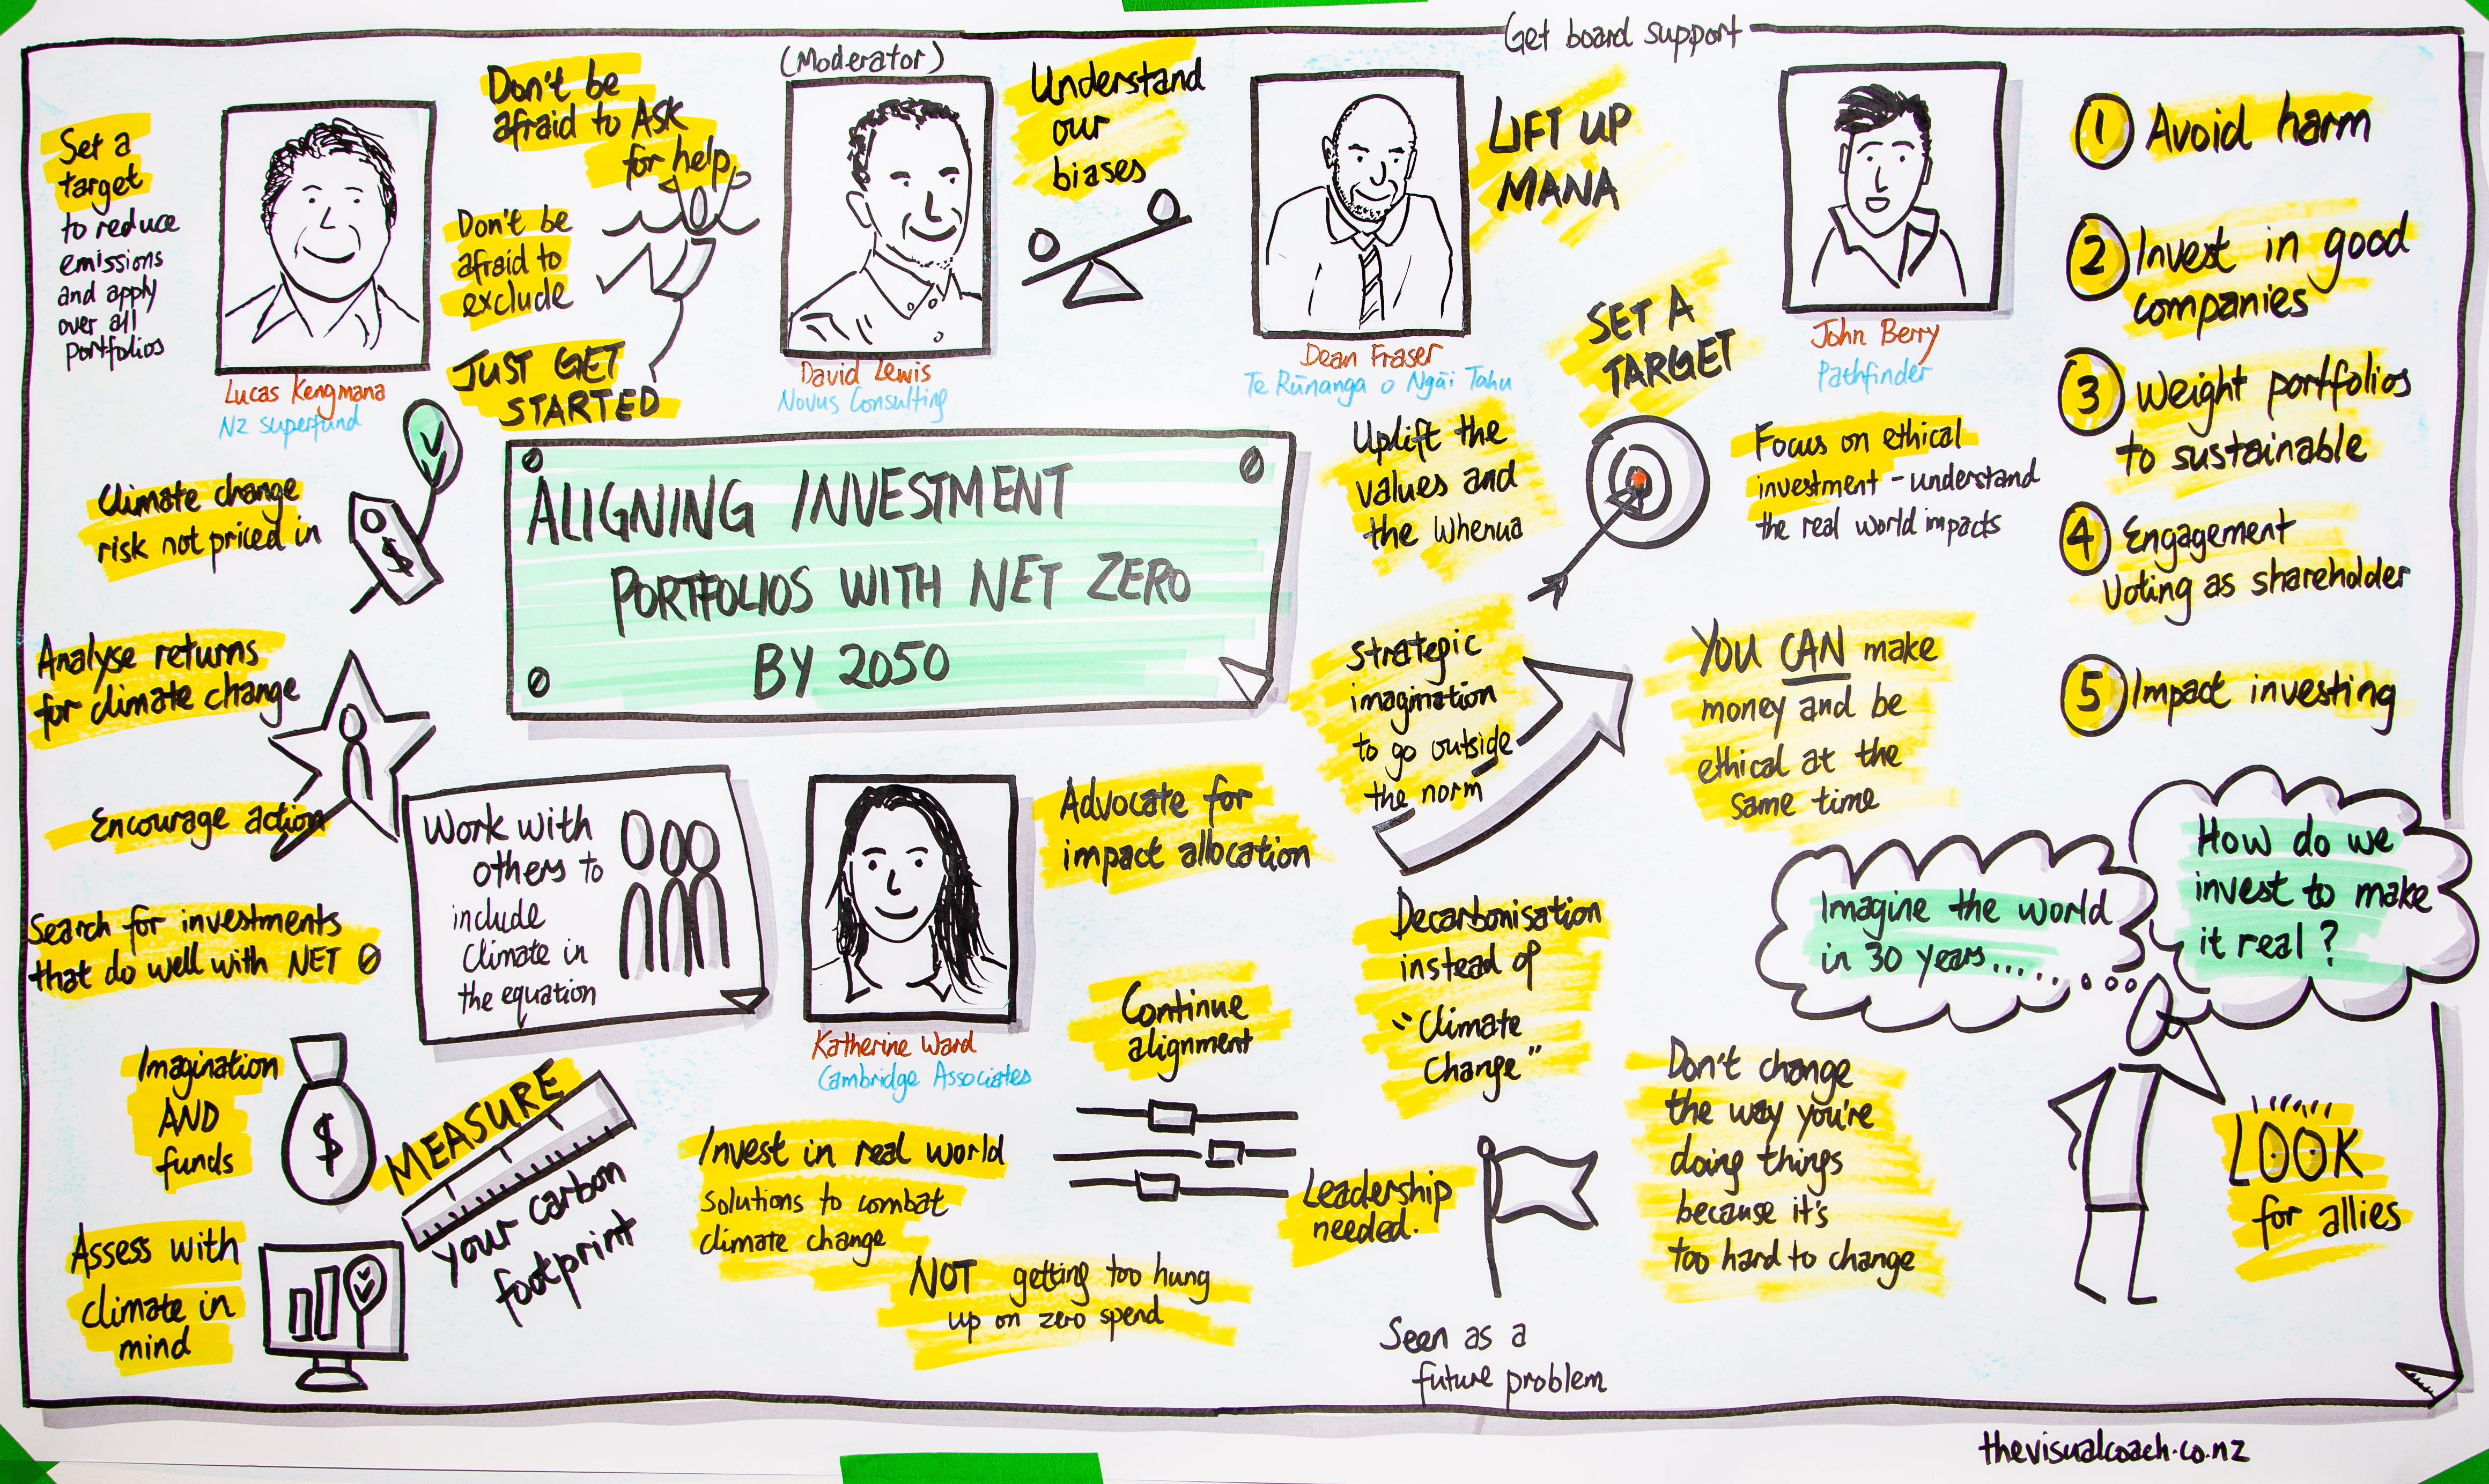 Get board support
Set a
target
to reduce
emissions
and apply
over all
portfolios
Lucas Kengmana
NZ Superfund
Don't be
afraid to ASK
for help
Don't be
afraid to
exclude
JUST GET
STARTED
(Moderator)
David Lewis
Novus Consulting
Understand
our
biases
Dean Fraser
Te Rūnanga o Ngāi Tahu
LIFT UP
MANA
SET A
TARGET
John Berry
Pathfinder
1 Avoid harm
2 Invest in good
companies
3 Weight portfolios
to sustainable
4 Engagement
Voting as shareholder
5 Impact investing
Climate change
risk not priced in
$
ALIGNING INVESTMENT
PORTFOLIOS WITH NET ZERO
BY 2050
Uplift the
values and
the Whenua
Focus on ethical
investment - understand
the real world impacts
Analyse returns
for climate change
Encourage action
Search for investments
that do well with NET 0
Work with
others to
include
Climate in
the equation
Katherine Ward
Cambridge Associates
Advocate for
impact allocation
Strategic
imagination
to go outside
the norm
YOU CAN make
money and be
ethical at the
same time
Imagine the world
in 30 years......
How do we
invest to make
it real?
Imagination
AND
funds
$
MEASURE
your carbon
footprint
Assess with
climate in
mind
Invest in real world
solutions to combat
climate change
NOT getting too hung
up on zero spend
Continue
alignment
Decarbonisation
instead of
"Climate
Change"
Leadership
needed.
Seen as a
future problem
Don't change
the way you're
doing things
because it's
too hard to change
LOOK
for allies
thevisualcoach.co.nz